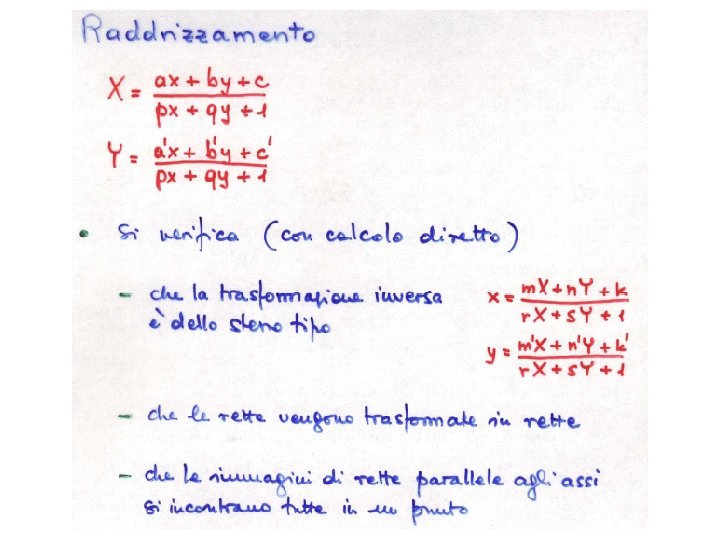 Raddrizzamento
X = ax + by + c / px + qy + 1
Y = a'x + b'y + c' / px + qy + 1
• Si verifica (con calcolo diretto)
- che la trasformazione inversa
è dello stesso tipo
x = mX + nY + k / rX + sY + 1
y = m'X + n'Y + k' / rX + sY + 1
- che le rette vengono trasformate in rette
- che le immagini di rette parallele agli assi
si incontrano tutte in un punto